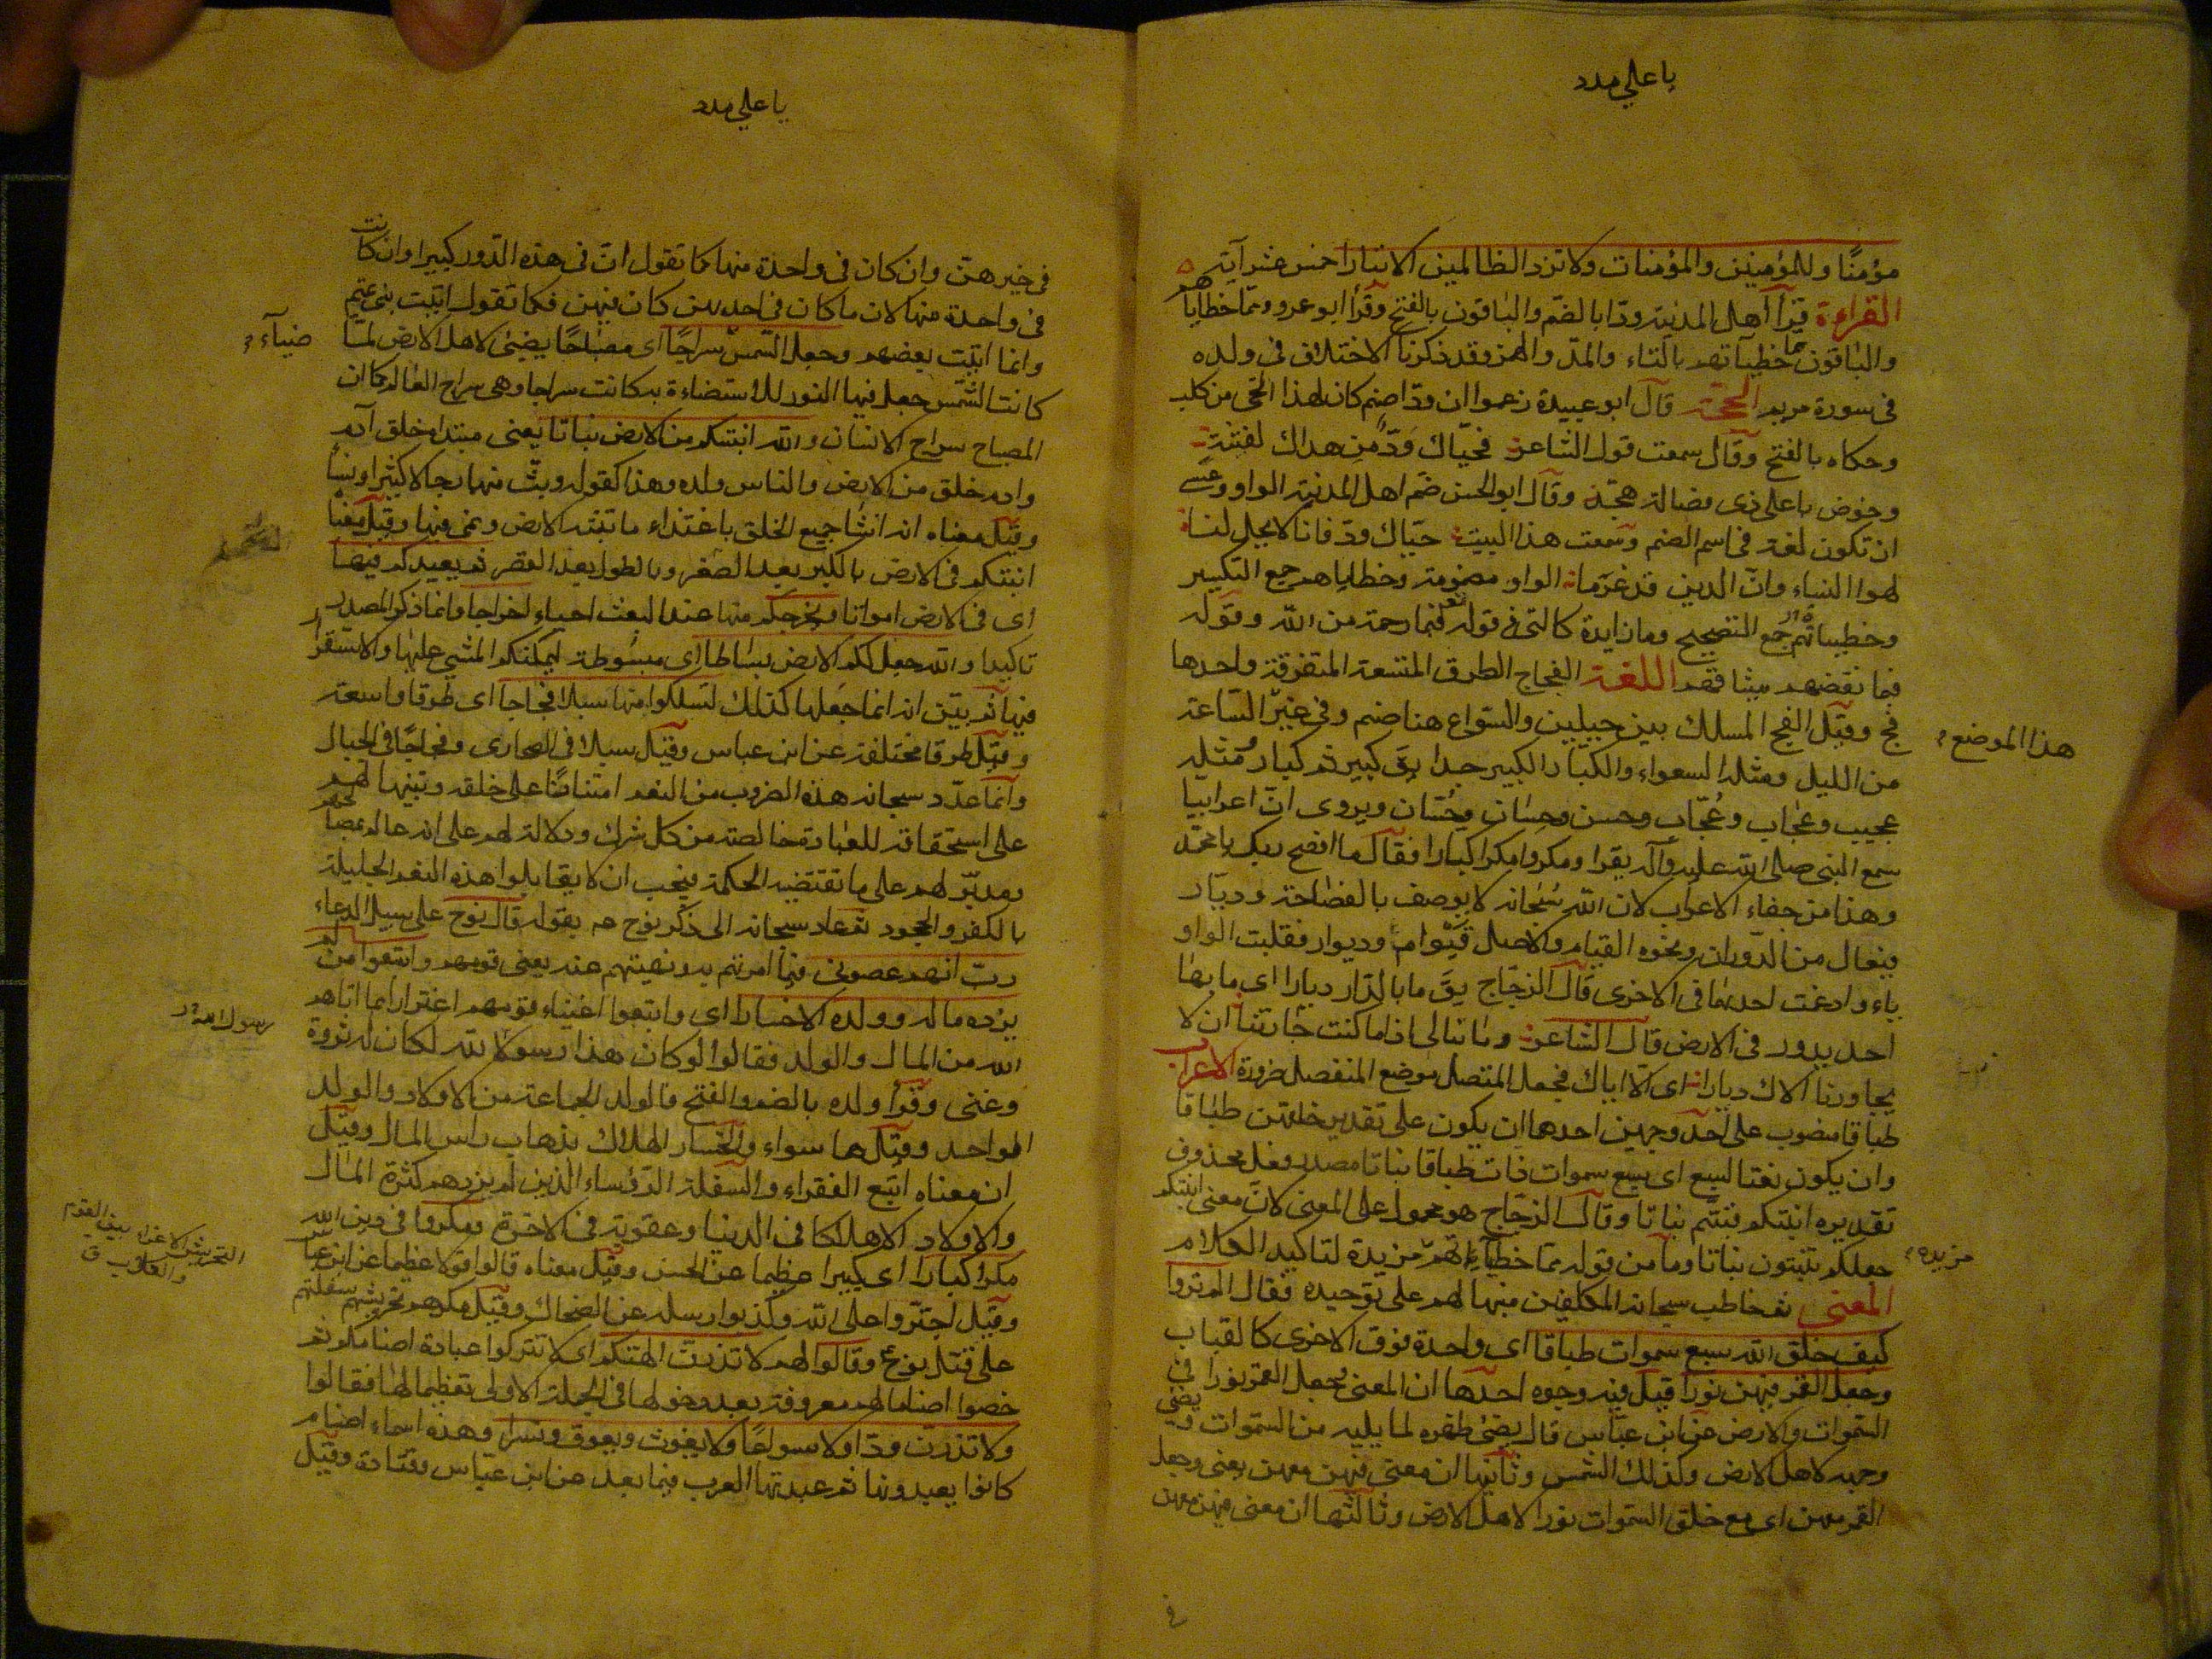 يا علي مدد
مؤمنًا وللمؤمنين والمؤمنات ولا تزد الظالمين الا تبارا خمس عشر آية
القراءة قرأ أهل المدينة ودّا بالضمّ والباقون بالفتح وقرأ ابو عمرو وممّا خطاياهم
والباقون مما خطيآتهم بالتاء والمدّ والهمز وقد ذكرنا الاختلاف في ولده
في سورة مريم الحجة قال ابو عبيدة زعموا ان ودّا صنم كان لهذا الحي من كلب
وحكاه بالفتح وقال سمعت قول الشاعر فحيّاك ودّ من هداك لفتية
وخوض باعلى ذى فضالة هجّد وقال ابو الحسن ضم اهل المدينة الواو وعسى
ان تكون لغة في اسم الصنم وسمعت هذا البيت حيّاك ودّ فانا لا يحل لنا
لهوا النساء وانّ الدين قد غرما الواو مضمومة وخطاياهم جمع التكسير
وخطيئاتهم جمع التصحيح وما زايدة كالتي في قوله فبما رحمة من الله وقوله
فبما نقضهم ميثاقهم اللغة الفجاج الطرق المتسعة المتفرقة واحدها
فج وقيل الفج المسلك بين جبيلين والسواع هنا صنم وفي غير الساعة
هذا الموضع
من الليل ومثله السعواء والكبار الكبير جدا يق كبير ثم كبار ومثله
عجيب وعجاب وعُجّاب وحسن وحسان وحُسّان ويروى انّ اعرابيا
سمع النبي صلى الله عليه وآله يقرا ومكروا مكرا كبارا فقال ما افصح ربك يا محمّد
وهذا من جفاء الاعراب لان الله سُبحانه لا يوصف بالفصاحة وديّار
فيعال من الدّوران ونحوه القيام والاصل قَيْوام وديوار فقلبت الواو
ياء وادغمت احدىهما في الاخرى قال الزجّاج يق ما بالدّار ديارا اى ما بها
احد يدور في الارض قال الشاعر وما نبالى اذا ما كنت جارتنا ان لا
يجاورنا الاك ديارا اى الّا اياك فجعل المتصل موضع المنفصل ضرورة الاعراب
طباقا منصوب على احد وجهين احدهما ان يكون على تقدير خلقهن طباقا
وان يكون نعتا لسبع اى سبع سموات ذات طباقا نباتا مصدر فعل محذوف
تقديره انبتكم فنبتّم نباتا وقال الزجّاج هو محمول على المعنى لانّ معنى انبتكم
جعلكم تنبتون نباتا وما من قوله ممّا خطيآتهم مزيدة لتاكيد الكلام
مزيدة
المعنى ثم خاطب سبحانه المكلفين منبها لهم على توحيده فقال الم تروا
كيف خلق الله سبع سموات طباقا اى واحدة فوق الاخرى كالقباب
وجعل القمر فيهن نورا قيل فيه وجوه احدها ان المعنى وجعل القمر نورا في
السموات والارض عن ابن عبّاس قال يضئ ظهره لما يليه من السموات ويضئ
وجهه لاهل الارض وكذلك الشمس وثانيها ان معنى فيهن معهن يعنى وجعل
القمر معهن اى مع خلق السموات نورا لاهل الارض وثالثها ان معنى فيهن معهن
يا علي مدد
في خيرهنّ وان كان في واحدة منها كما تقول انّ في هذه الدّور كبيرا وان كانت
في واحدة منها لان ما كان في احديهن كان فيهن فكما تقول اتيت بنى تميم
وانما اتيت بعضهم وجعل الشمس سراجًا اى مصباحًا يضئ لاهل الارض لمّا
ضياء
كانت الشمس جعل فيها النور للاستضاءة به كانت سراجا وهي سراج العالم كما ان
المصباح سراج الانسان والله انبتكم من الارض نباتا يعنى مبتداء خلق آدم
وادم خلق من الارض والناس ولده وهذا كقوله وبثّ منهما رجالا كثيرا ونساء
وقيل معناه انه انشا جميع الخلق باغتذاء ما تنبته الارض ونمى فيها وقيل معناه
انبتكم في الارض بالكبر بعد الصغر وبالطول بعد القصر ثم يعيدكم فيها
اى في الارض امواتا ويخرجكم منها عند البعث احياء اخراجا وانما ذكر المصدر
تاكيدا والله جعل لكم الارض بساطا اى مبسُوطة ليمكنكم المشى عليها والاستقرار
فيها ثم بيّن انه انما جعلها كذلك لتسلكوا منها سبلا فجاجا اى طرقا واسعة
وقيل طرقا مختلفة عن ابن عباس وقيل سبلا في الصحارى وفجاجًا في الجبال
وانما عدّد سبحانه هذه الضروب من النعم امتنانًا على خلقه وتنبيها لهم
على استحقاقه للعبادة خالصة من كل شرك ودلالة لهم على انه عالم بمصالحهم
ومدبّر لهم على ما تقتضيه الحكمة فيجب ان لا يقابلوا هذه النعم الجليلة
بالكفر والجحود ثم عاد سبحانه الى ذكر نوح عه بقوله قال نوح على سبيل الدعاء
ربّ انهم عصونى فيما امرتهم به ونهيتهم عنه يعنى قومهم واتبعوا من لم
يزده ماله وولده الا خسارا اى واتبعوا اغنياء قومهم اغترارا بما اتاهم
الله من المال والولد فقالوا لو كان هذا رسولا لله لكان له ثروة
رسول الله
وغنى وقرأ ولده بالضم والفتح فالولد الجماعة من الاولاد والولد
الواحد وقيل هما سواء والخسار الهلاك بذهاب راس المال وقيل
ان معناه اتبع الفقراء والسفلة الرؤساء الذين لم يزدهم كثرة المال
والاولاد الا هلاكا في الدنيا وعقوبة في الاخرة ومكروا في دين الله
مكرا كبارا اى كبيرا عظيما عن الحسن وقيل معناه قالوا قولا عظيما عن ابن عباس
التحريش الاغراء بين القوم
والكلاب ق
وقيل اجترّوا على الله وكذبوا رسله عن الضحاك وقيل مكرهم تحريشهم سفلتهم
على قتل نوح ع وقالوا لهم لا تذرنّ الهتكم اى لا تتركوا عبادة اصنامكم ثم
خصوا اصناما لهم معروفة بعد دخولها في الجملة الاولى تعظيما لها فقالوا
ولا تذرنّ ودّا ولا سواعًا ولا يغوث ويعوق ونسرا وهذه اسماء اصنام
كانوا يعبدونها ثم عبدتها العرب فيما بعد عن ابن عبّاس وقتادة وقيل